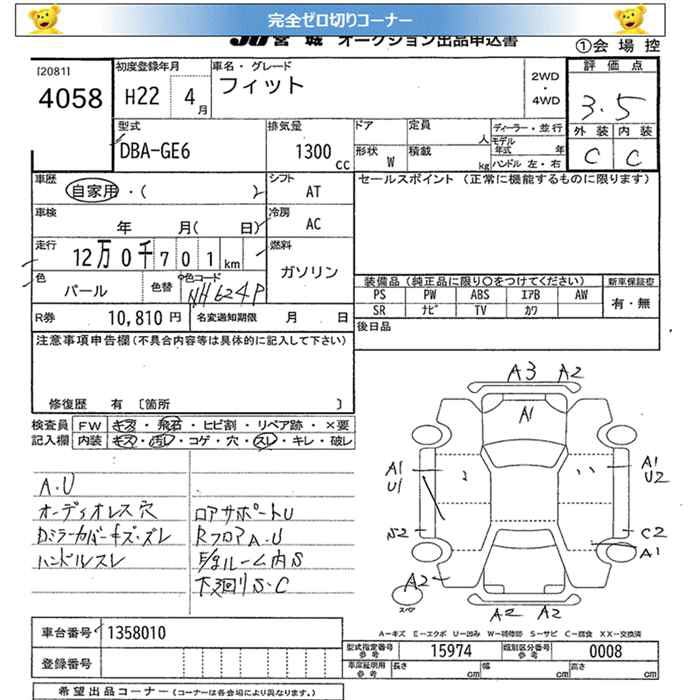 完全ゼロ切りコーナー
JU宮城 オークション出品申込書
①会場控
[2081]
4058
初度登録年月
H22 4月
車名・グレード
フィット
2WD
・
4WD
評価点
3.5
外装 内装
C C
型式
DBA-GE6
排気量
1300 CC
ドア
定員 人
ディーラー・並行
モデル年式 年
形状 W
積載 kg
ハンドル 左・右
車歴
自家用・( )
シフト
AT
セールスポイント (正常に機能するものに限ります)
車検
年 月( 日)
冷房
AC
走行
12万0千701km
燃料
ガソリン
色
パール
色替
色コード
NH624P
装備品(純正品に限り○をつけてください)
新車保証書
PS PW ABS エアB AW
SR ナビ TV カワ
有・無
R券 10,810 円
名変通知期限 月 日
後日品
注意事項申告欄(不具合内容等は具体的に記入して下さい)
修復歴 有 〔箇所 〕
検査員記入欄
FW キズ・飛石・ヒビ割・リペア跡・×要
内装 キズ・汚レ・コゲ・穴・スレ・キレ・破レ
A.U
オーディオレス穴
Dミラーカバーキズ・ズレ
ハンドルスレ
ロアサポートU
RフロアA.U
ルーム内S
下廻りS・C
A3 A2
A1
A1
U1
A1
U2
S2
C2
A1
A2
スペア
A2 A2
A-キズ E-エクボ U-凹み W-補修跡 S-サビ C-腐食 XX-交換済
車台番号 1358010
型式指定番号 参考 15974
類別区分番号 参考 0008
登録番号
車庫証明用 参考
長さ
幅
高さ
希望出品コーナー(コーナーは各会場により異なります。)